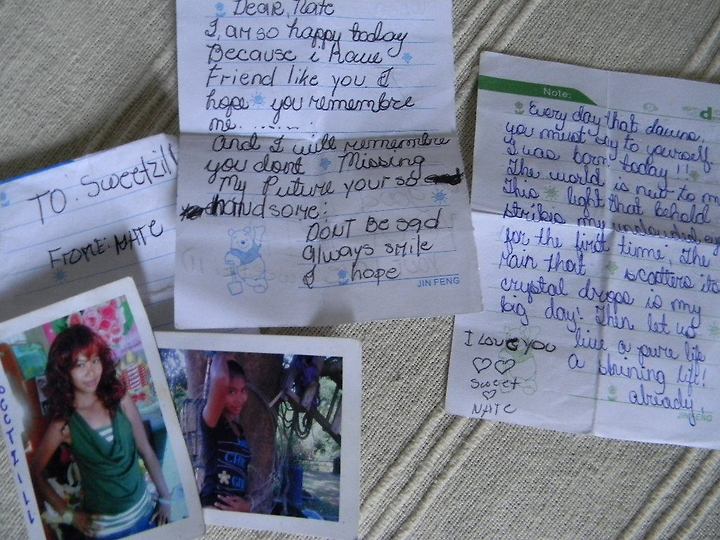 Dear, Nate
I, am so happy today
Because i have
Friend like you I
hope you remembre
me.......
And I will remembre
you dont Missing
My Future your so
handsome:
DONT Be sad
always smile
I hope
JIN FENG
TO: Sweetzill
FROME: NATE
Note:
Every day that dawns,
you must say to yourself
I was born today!!
The world is new to me
This light that behold
strikes my unclouded eyes
for the first time; The
rain that scatters its
crystal drops is my
big day! Then let us
live a pure life
a shining life!
already
I love you
Sweet
NATE